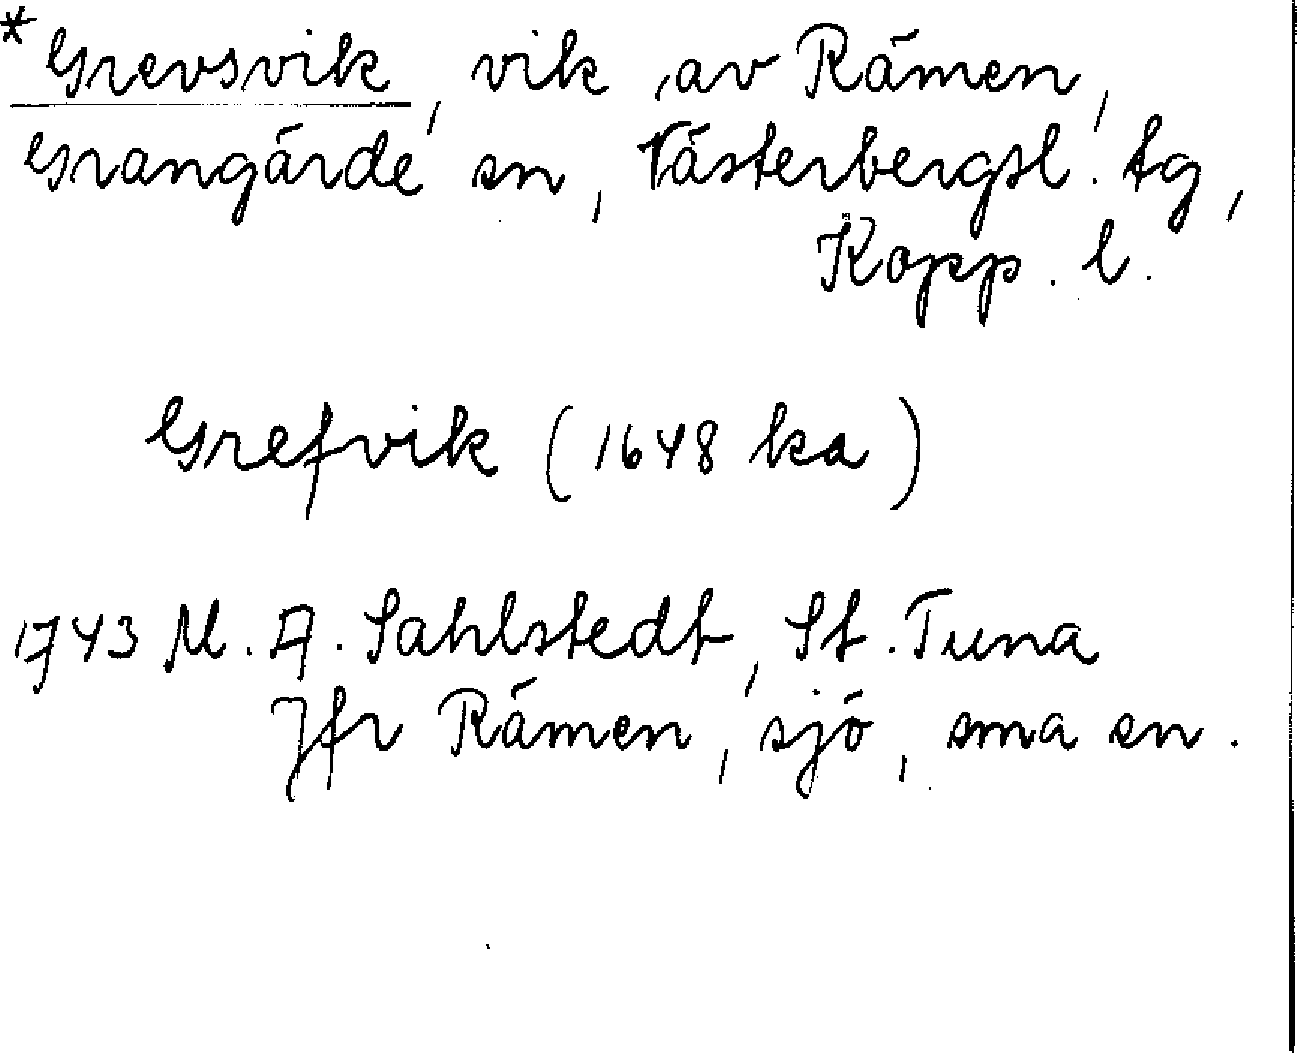 *Grevsvik, vik av Rämen,
Grangärde sn, Västerbergsl. tg,
Kopp. l.
Grefvik (1648 ka)
1743 M. A. Sahlstedt, St. Tuna
Jfr Rämen, sjö, sma sn.